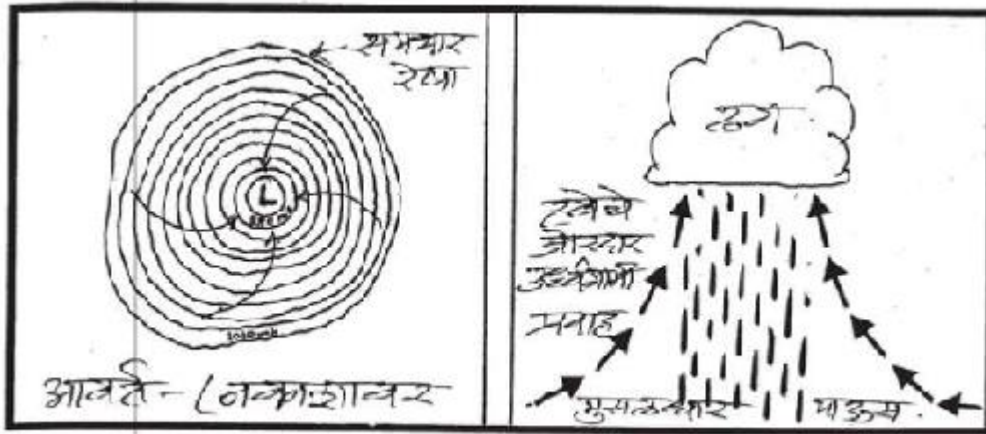 समभार
रेषा
L
आवर्त - (नकाशावर
ढग
हवेचे
जोरदार
उर्ध्वगामी
प्रवाह
मुसळधार पाऊस